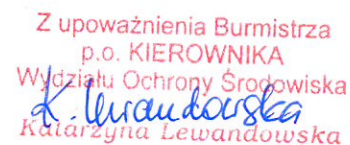 Z upoważnienia Burmistrza
p.o. KIEROWNIKA
Wydziału Ochrony Środowiska
K. Lewandowska
Katarzyna Lewandowska